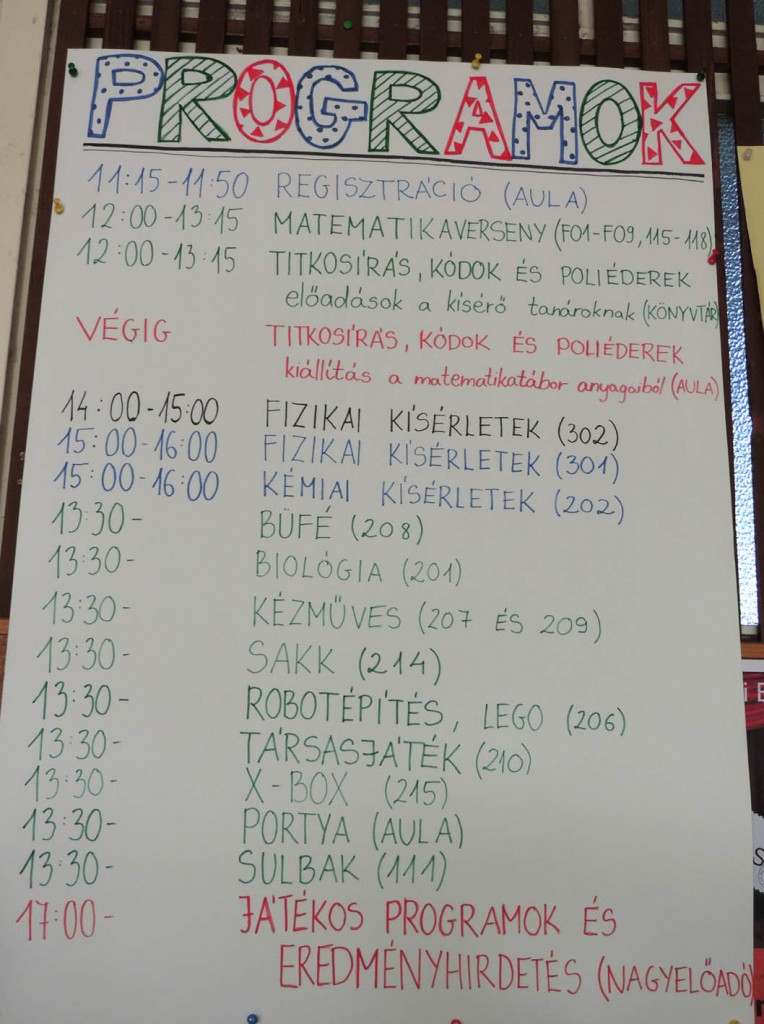 PROGRAMOK
11:15-11:50 REGISZTRÁCIÓ (AULA)
12:00-13:15 MATEMATIKAVERSENY (F01-F09, 115-118)
12:00-13:15 TITKOSÍRÁS, KÓDOK ÉS POLIÉDEREK
előadások a kísérő tanároknak (KÖNYVTÁR)
VÉGIG TITKOSÍRÁS, KÓDOK ÉS POLIÉDEREK
kiállítás a matematikatábor anyagaiból (AULA)
14:00-15:00 FIZIKAI KÍSÉRLETEK (302)
15:00-16:00 FIZIKAI KÍSÉRLETEK (301)
15:00-16:00 KÉMIAI KÍSÉRLETEK (202)
13:30- BÜFÉ (208)
13:30- BIOLÓGIA (201)
13:30- KÉZMŰVES (207 ÉS 209)
13:30- SAKK (214)
13:30- ROBOTÉPÍTÉS, LEGO (206)
13:30- TÁRSASJÁTÉK (210)
13:30- X-BOX (215)
13:30- PORTYA (AULA)
13:30- SULBAK (111)
17:00- JÁTÉKOS PROGRAMOK ÉS
EREDMÉNYHIRDETÉS (NAGYELŐADÓ)